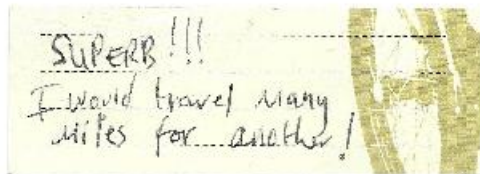 SUPERB!!!
I would travel many
miles for another!